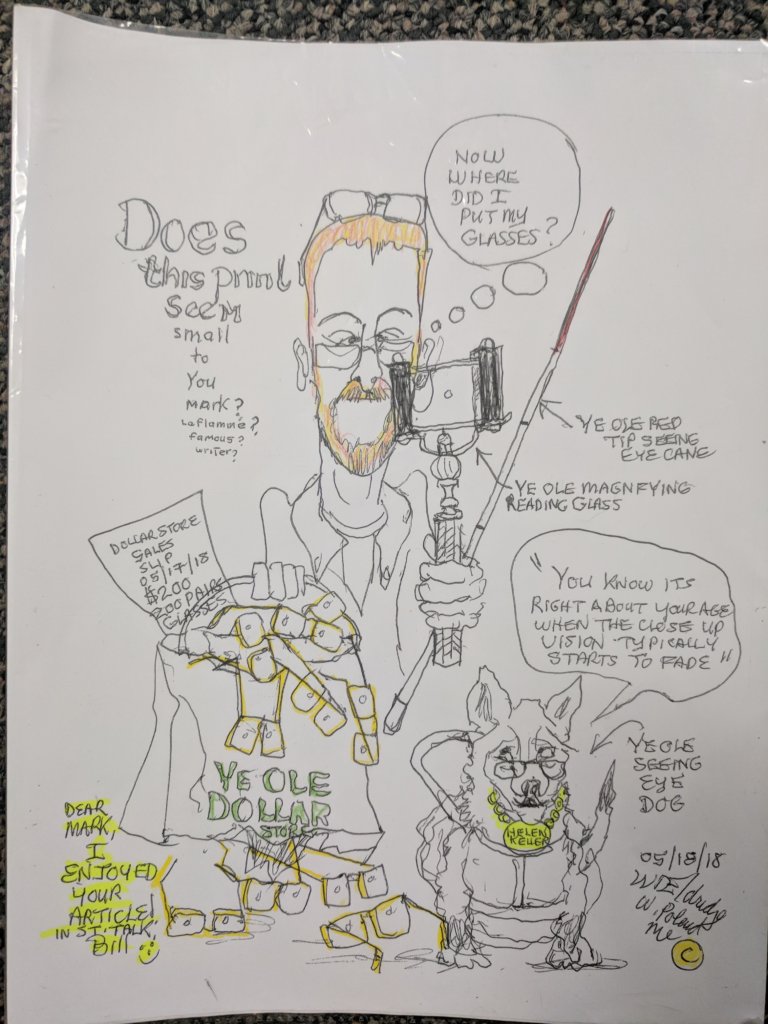 NOW
WHERE
DID I
PUT MY
GLASSES?
Does
this print
seem
small
to
you
mark?
Laflamme?
famous?
writer?
YE OLE RED
TIP SEEING
EYE CANE
YE OLE MAGNFYING
READING GLASS
DOLLAR STORE
SALES
SLIP
05/17/18
$200
200 PAIRS
GLASSES
"YOU KNOW ITS
RIGHT ABOUT YOUR AGE
WHEN THE CLOSE UP
VISION TYPICALLY
STARTS TO FADE"
YE OLE
SEEING
EYE
DOG
YE OLE
DOLLAR
STORE
HELEN
KELLER
DEAR
MARK,
I
ENJOYED
YOUR
ARTICLE
IN ST. TALK,
Bill
05/18/18
W.
ME
C